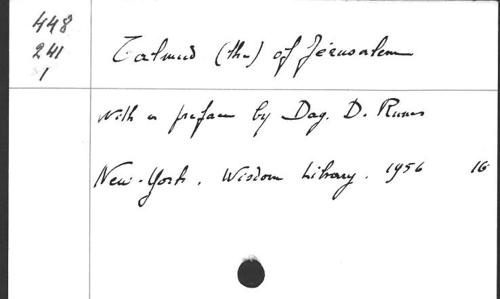 448
241
1
Talmud (the) of Jérusalem
with a preface by Dag. D. Runes
New-York. Wisdom Library. 1956 16